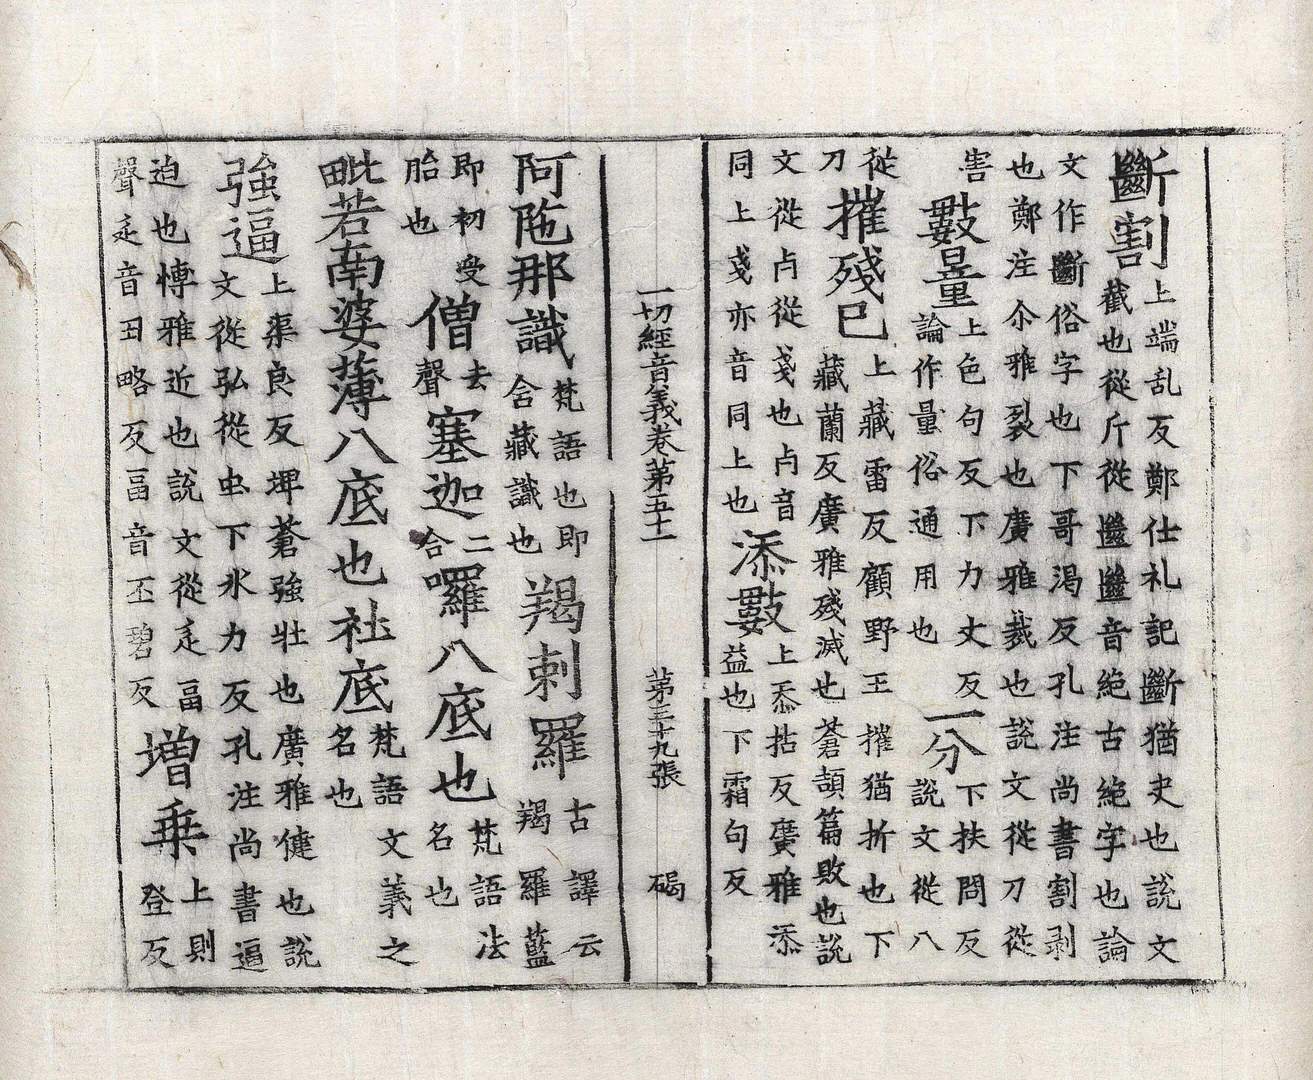 斷割上端乱反鄭仕礼記斷猶史也説文
截也從斤從㡭㡭音絶古絶字也論
文作斷俗字也下哥渴反孔注尚書割剥
也鄭注尒雅裂也廣雅裁也説文從刀從
害
數量上色句反下力丈反
論作量俗通用也
一分下扶問反
説文從八
從刀
摧殘已上藏雷反顧野王摧猶折也下
藏蘭反廣雅殘滅也蒼頡篇敗也説
文從歺從戔也歺音
同上戔亦音同上也
添數上忝拈反廣雅添
益也下霜句反
一切經音義卷第五十一
第三十九張
碣
阿陁那識梵語也即
含藏識也
羯剌羅古譯云
羯羅藍
即初受
胎也
僧去聲塞迦二合囉八底也梵語法
名也
毗若南婆薄八底也社底梵語文義之
名也
強逼上渠良反埤蒼強壯也廣雅健也説
文從弘從虫下氷力反孔注尚書逼
迫也愽雅近也説文從辵畐
聲辵音丑略反畐音丕碧反
增乗上則
登反